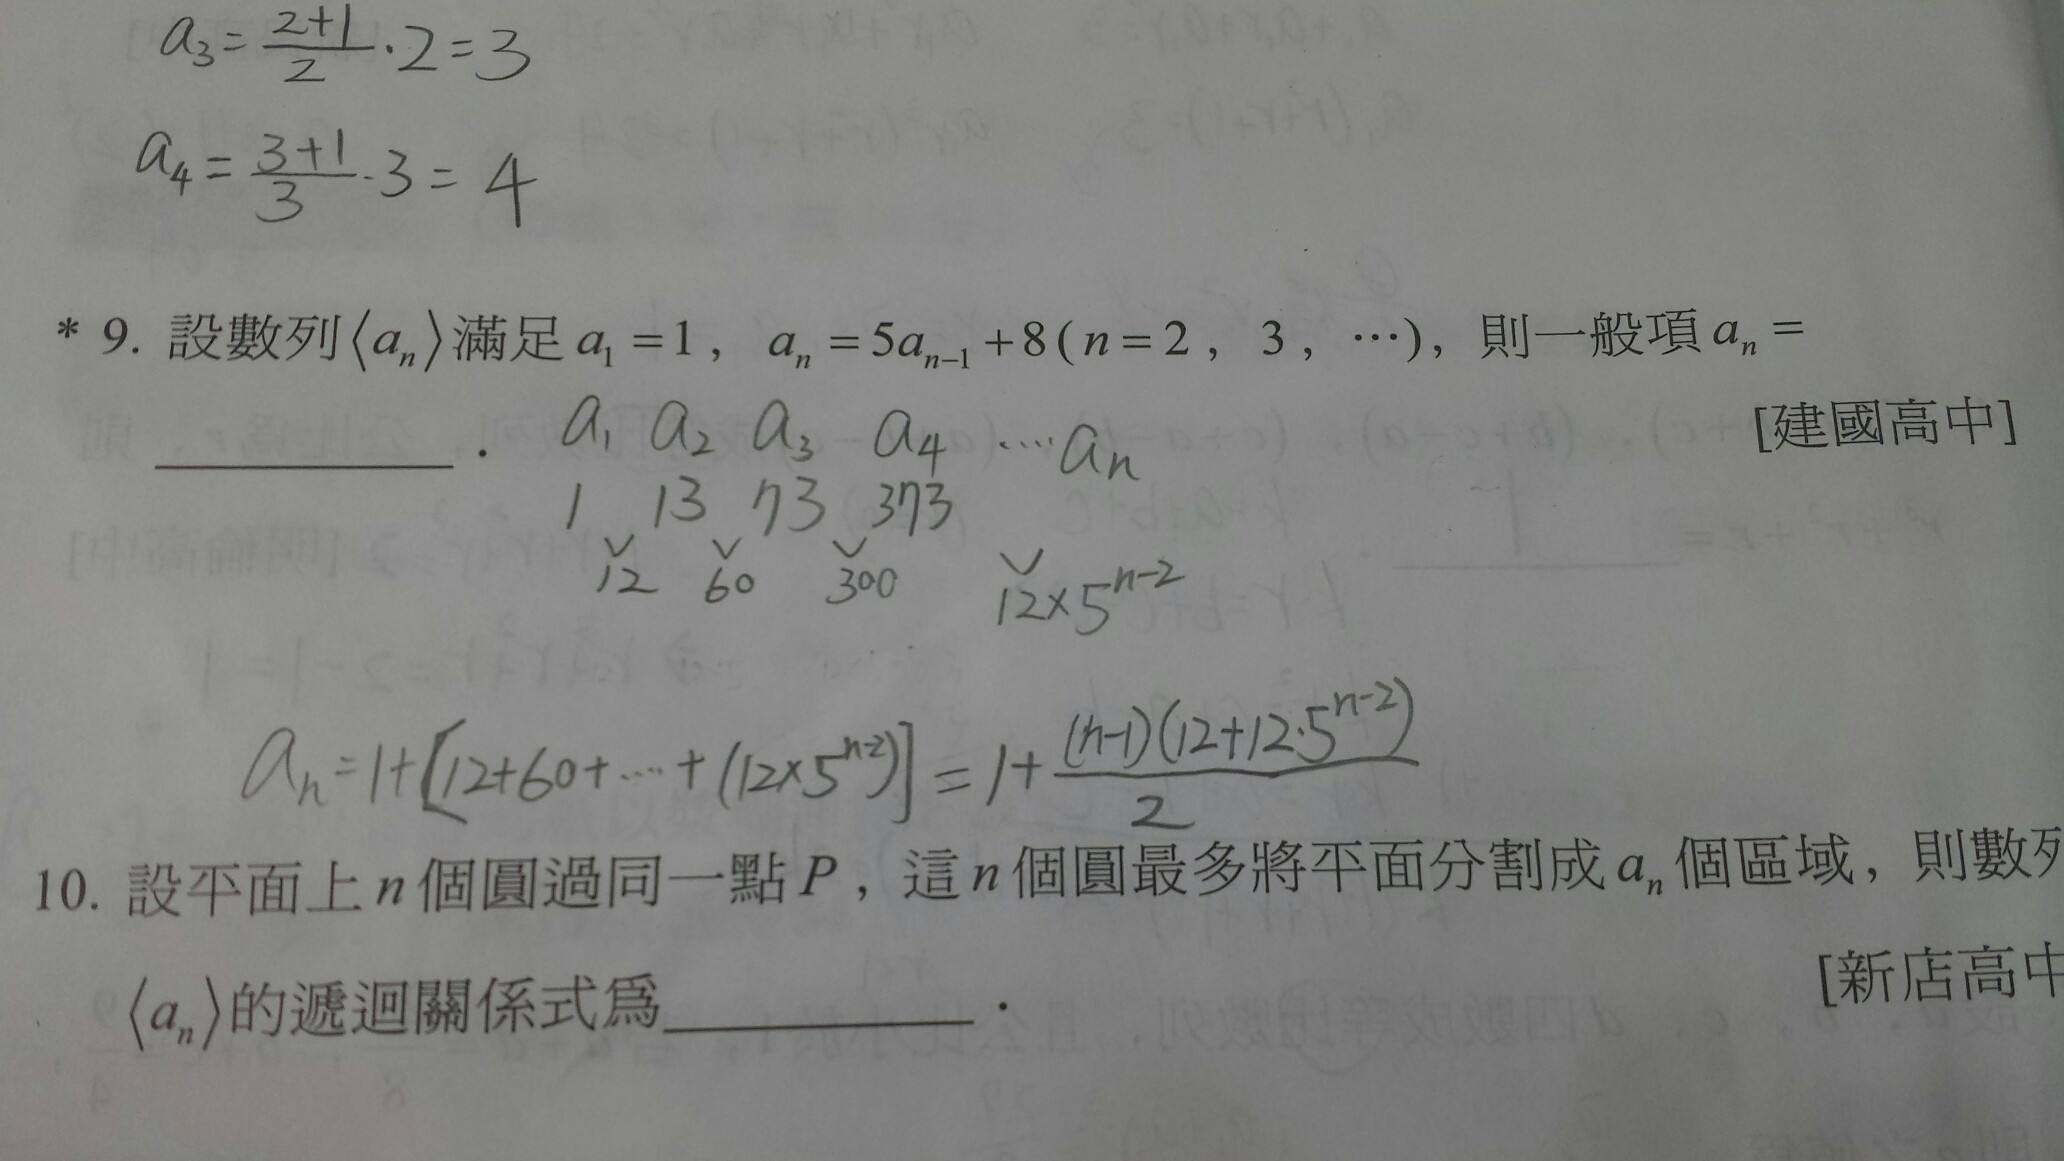 a₃ = (2+1)/2 · 2 = 3
a₄ = (3+1)/3 · 3 = 4
* 9. 設數列⟨aₙ⟩滿足 a₁ = 1, aₙ = 5aₙ₋₁ + 8 ( n = 2 , 3 , ⋯), 則一般項 aₙ =
________ . [建國高中]
a₁ a₂ a₃ a₄ ⋯ aₙ
1 13 73 373
12 60 300 12×5ⁿ⁻²
aₙ = 1+[12+60+⋯+(12×5ⁿ⁻²)] = 1+ (n-1)(12+12·5ⁿ⁻²)/2
10. 設平面上 n 個圓過同一點 P , 這 n 個圓最多將平面分割成 aₙ 個區域, 則數列
⟨aₙ⟩的遞迴關係式為________ . [新店高中